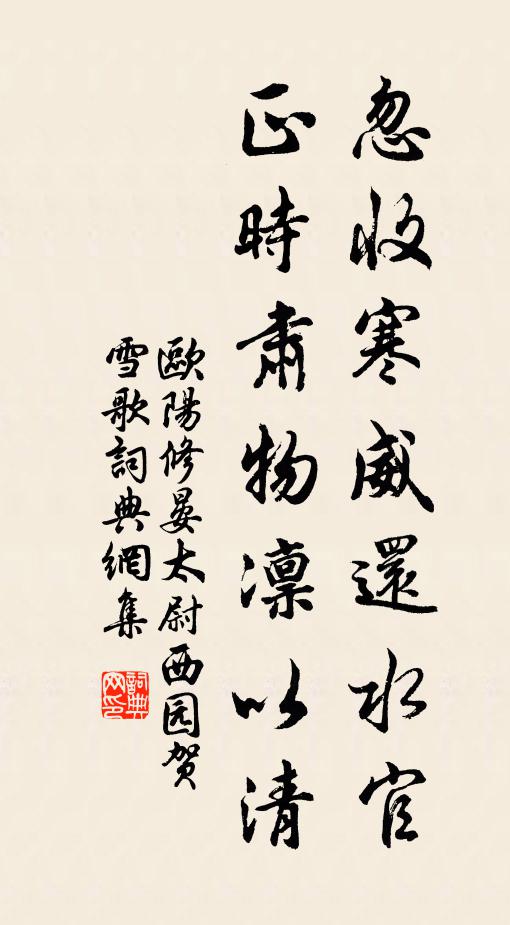 忽收寒威還水官
正時肅物凛以清
歐陽修晏太尉西园贺
雪歌詞典網集
詞典
网印